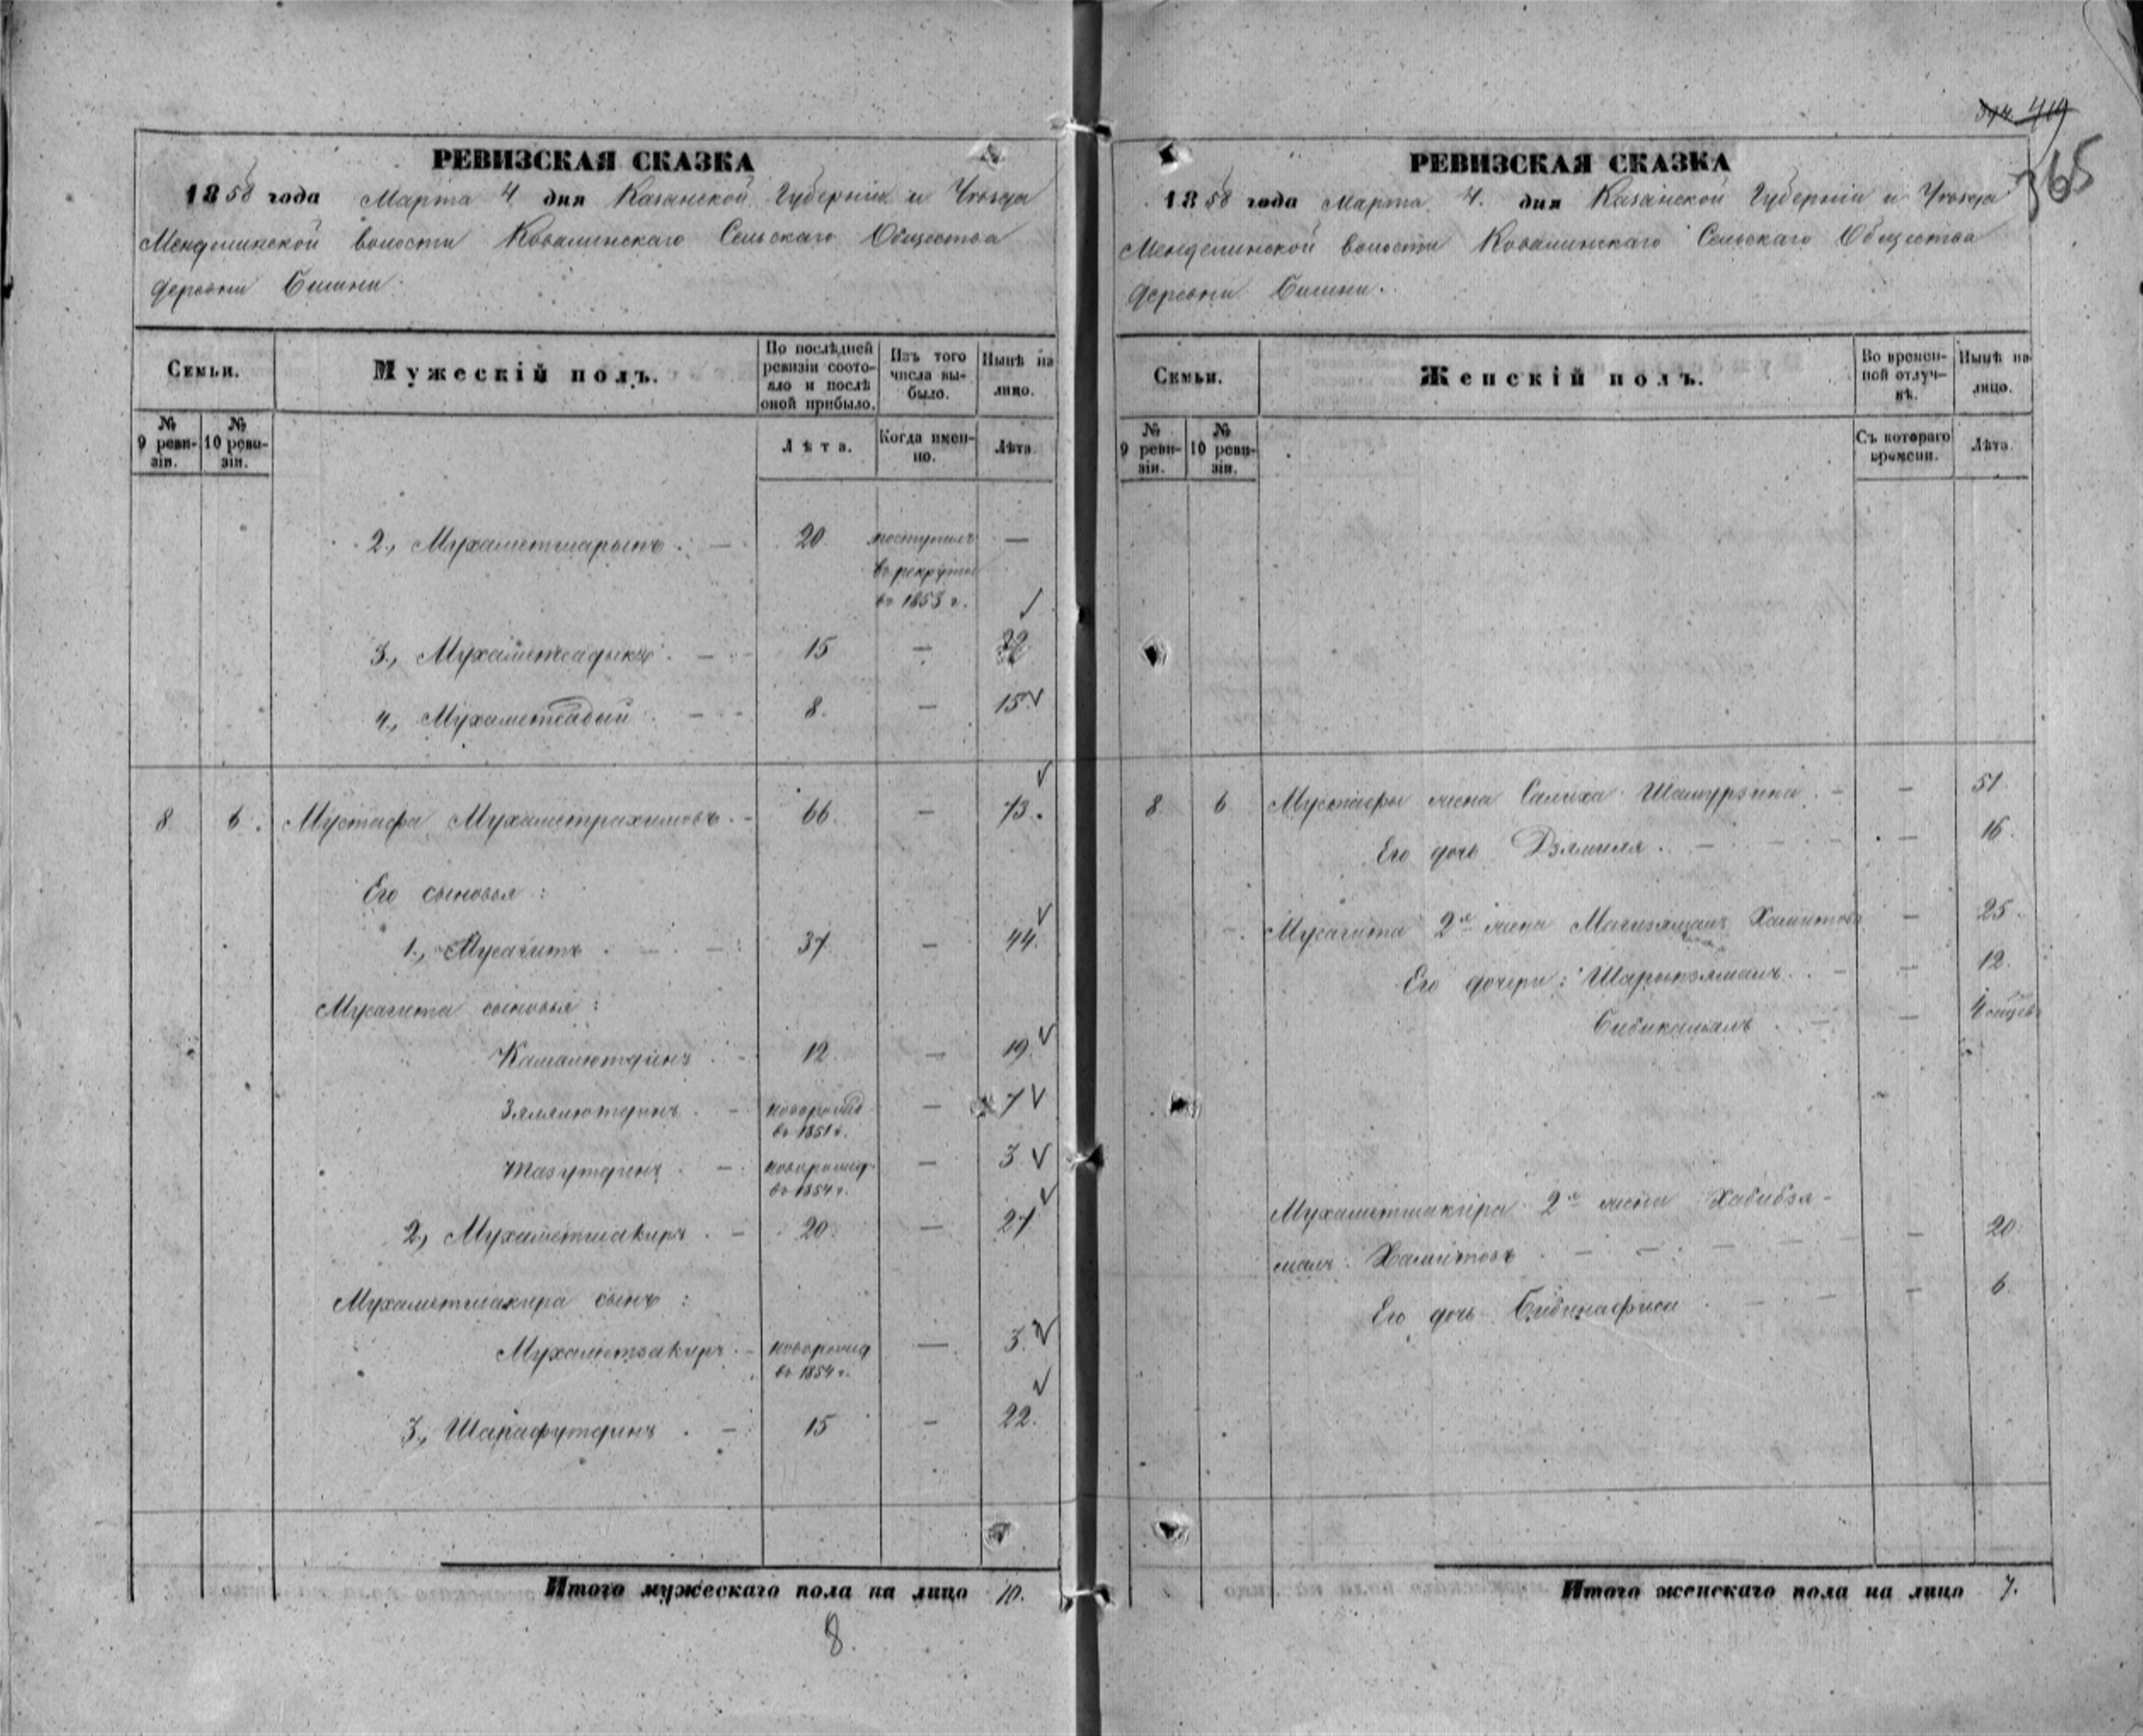 394 419
365
РЕВИЗСКАЯ СКАЗКА
1858 года Марта 4 дня Казанской Губерніи и Уѣзда
Менделинской волости Ковалинскаго Сельскаго Общества
деревни Бимни.
Семьи.
Мужескій полъ.
По послѣдней ревизіи состояло и послѣ оной прибыло.
Изъ того числа выбыло.
Нынѣ на лицо.
№ 9 ревизіи.
№ 10 ревизіи.
Лѣта.
Когда именно.
Лѣта.
2., Мухаметшарыпъ . — 20. поступилъ въ рекруты въ 1853 г. —
3., Мухаметсадыкъ . — 15 — 22
4., Мухаметсадый . — 8. — 15
8 6. Мустафа Мухаметрахимовъ . - 66. — 73.
Его сыновья :
1., Мусагитъ . — 37 — 44.
Мусагита сыновья :
Камалютдинъ . - 12. — 19.
Зялялютдинъ . - новорожд. въ 1851 г. — 7
Тазутдинъ . — новорожд. въ 1854 г. — 3
2., Мухаметшакиръ . — 20. — 27
Мухаметшакира сынъ :
Мухаметзакиръ . - новорожд въ 1854 г. — 3.
3., Шарафутдинъ . — 15 — 22.
Итого мужескаго пола на лицо 10.
8.
РЕВИЗСКАЯ СКАЗКА
1858 года Марта 4. дня Казанской Губерніи и Уѣзда
Менделинской волости Ковалинскаго Сельскаго Общества
деревни Бимни.
Семьи.
Женскій полъ.
Во временной отлучкѣ.
Нынѣ на лицо.
№ 9 ревизіи.
№ 10 ревизіи.
Съ котораго времени.
Лѣта.
8 6 Мустафы жена Салиха Шамурзина . - — 51.
Его дочь Зямиля . — — 16.
Мусагита 2я жена Хамитова — 25.
Его дочери : Шарыпзямалъ . - — 12.
Бибикамалъ . — — 4
Мухаметшакира 2я жена Хабибзя-
малъ Хамитова . — — 20.
Его дочь Бибинафиса . — — 6.
Итого женскаго пола на лицо 7.